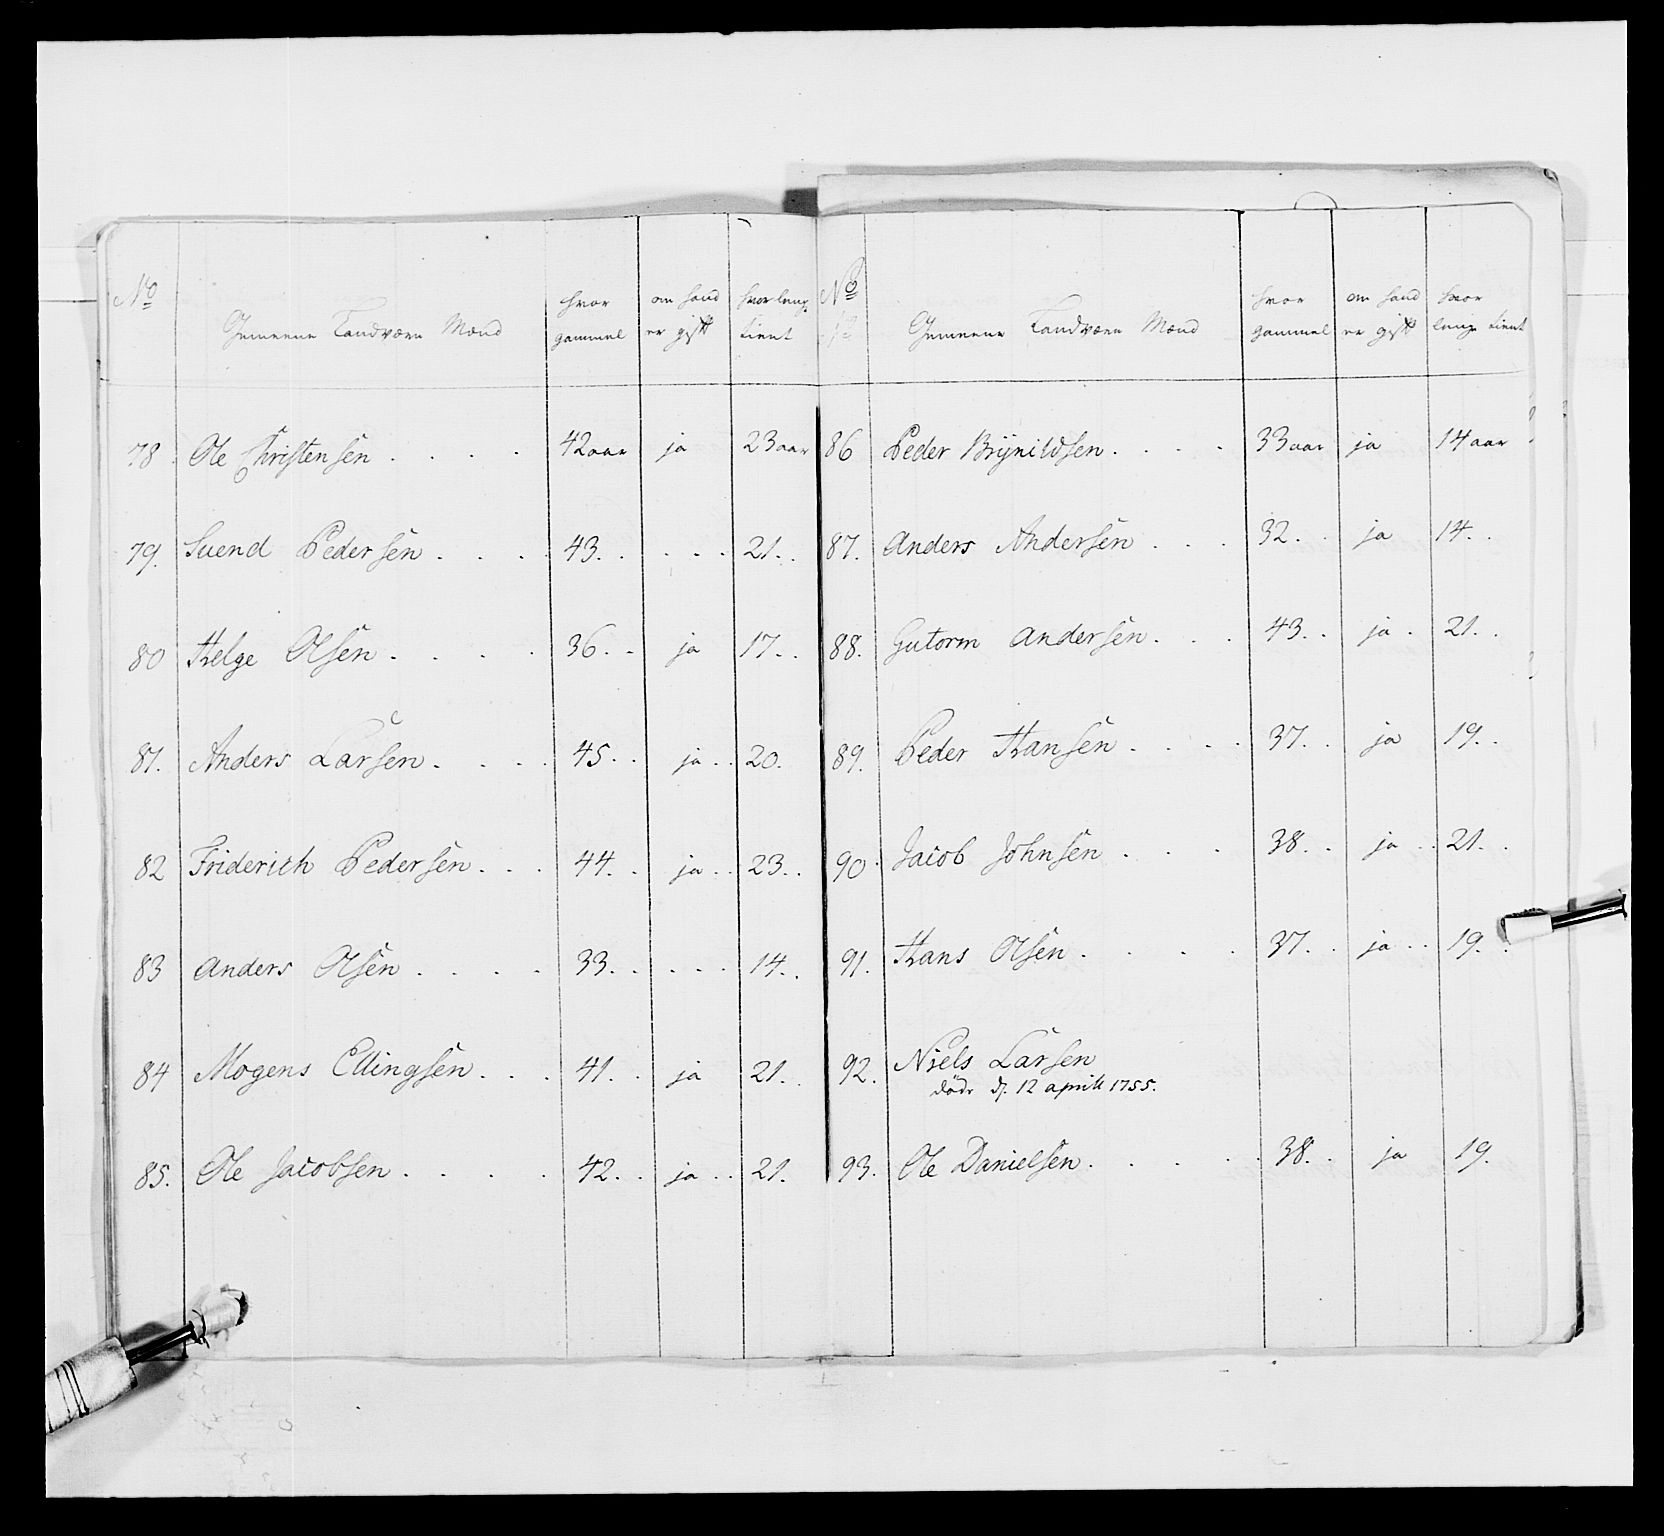 No
Gemeene Landværn Mænd
hvor gammel
om hand er gift
hvor leng tient
78. Ole Christensen . . . . 42 aar ja 23 aar
79. Suend Pedersen . . . . 43. . . . . 21. .
80 Helge Olsen . . . . 36. . ja 17. .
81. Anders Larsen . . . . 45. . ja . . 20.
82 Friderich Pedersen . . . 44. . ja . . 23. .
83 Anders Olsen . . . . 33. . . . . 14. .
84 Mogens Ellingsen . . . 41. . ja 21. .
85. Ole Jacobsen . . . . 42. . ja . . 21.
No
Gemeene Landværn Mænd
hvor gammel
om hand er gift
hvor lenge tient
86 Peder Brÿnildsen . . . . 33 aar ja 14 aar
87. Anders Andersen . . . 32. . ja 14. .
88. Gutorm Andersen . . . 43. . ja . 21. .
89. Peder Hansen . . . . 37. . ja 19. .
90. Jacob Johnsen . . . 38. . ja . . 21. .
91. Hans Olsen . . . . 37. . ja . . 19. .
92. Niels Larsen
döde d. 12 april 1755.
93. Ole Danielsen . . . . . 38. . ja 19.